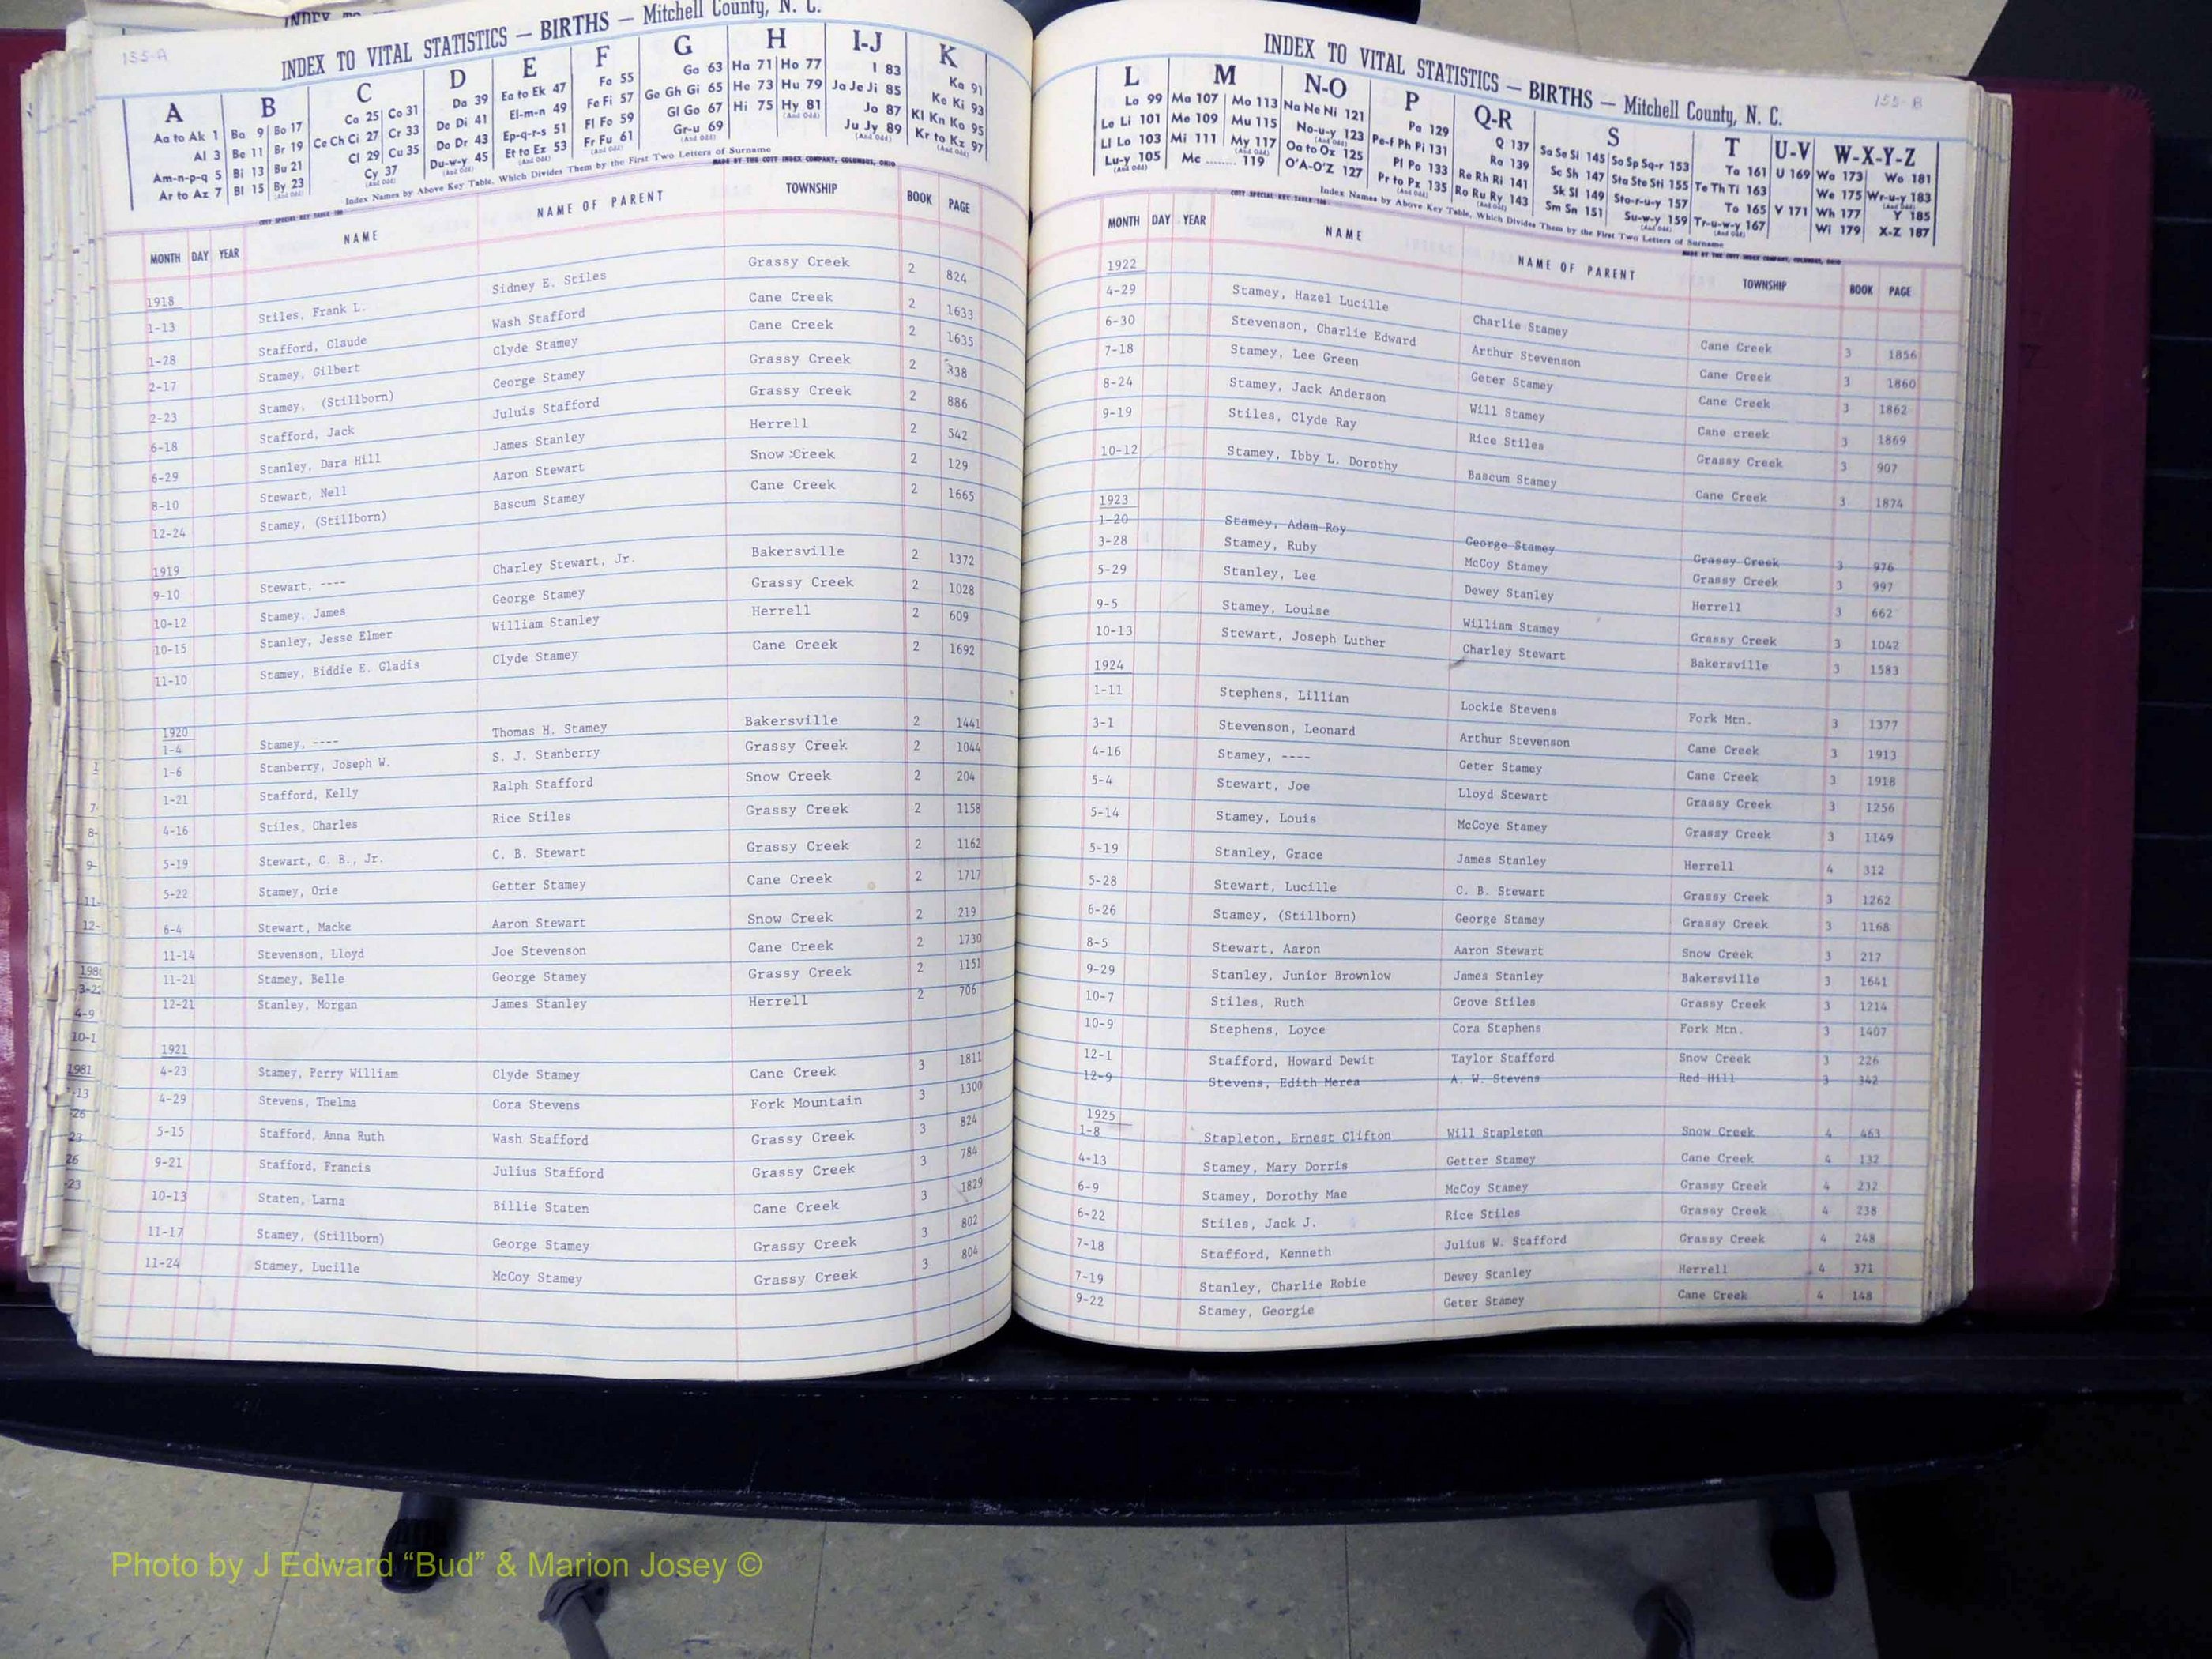 155-A
INDEX TO VITAL STATISTICS — BIRTHS — Mitchell County, N. C.
A B C D E F G H I-J K
Aa to Ak 1 Ba 9 Bo 17 Ca 25 Co 31 Da 39 Ea to Ek 47 Fa 55 Ga 63 Ha 71 Ho 77 I 83 Ka 91
Al 3 Be 11 Br 19 Ce Ch Ci 27 Cr 33 De Di 41 El-m-n 49 Fe Fi 57 Ge Gh Gi 65 He 73 Hu 79 Ja Je Ji 85 Ke Ki 93
Am-n-p-q 5 Bi 13 Bu 21 Cl 29 Cu 35 Do Dr 43 Ep-q-r-s 51 Fl Fo 59 Gl Go 67 Hi 75 Hy 81 (And Odd) Jo 87 Kl Kn Ko 95
Ar to Az 7 Bl 15 By 23 (And Odd) Cy 37 (And Odd) Du-w-y 45 Et to Ez 53 (And Odd) Fr Fu 61 (And Odd) Gr-u 69 (And Odd) Ju Jy 89 (And Odd) Kr to Kz 97 (And Odd)
Index Names by Above Key Table, Which Divides Them by the First Two Letters of Surname
MADE BY THE COTT INDEX COMPANY, COLUMBUS, OHIO
MONTH DAY YEAR NAME NAME OF PARENT TOWNSHIP BOOK PAGE
1918
1-13 Stiles, Frank L. Sidney E. Stiles Grassy Creek 2 824
1-28 Stafford, Claude Wash Stafford Cane Creek 2 1633
2-17 Stamey, Gilbert Clyde Stamey Cane Creek 2 1635
2-23 Stamey, (Stillborn) George Stamey Grassy Creek 2
6-18 Stafford, Jack Juluis Stafford Grassy Creek 2 886
6-29 Stanley, Dara Hill James Stanley Herrell 2 542
8-10 Stewart, Nell Aaron Stewart Snow Creek 2 129
12-24 Stamey, (Stillborn) Bascum Stamey Cane Creek 2 1665
1919
9-10 Stewart, ---- Charley Stewart, Jr. Bakersville 2 1372
10-12 Stamey, James George Stamey Grassy Creek 2 1028
10-15 Stanley, Jesse Elmer William Stanley Herrell 2 609
11-10 Stamey, Biddie E. Gladis Clyde Stamey Cane Creek 2 1692
1920
1-4 Stamey, ---- Thomas H. Stamey Bakersville 2 1441
1-6 Stanberry, Joseph W. S. J. Stanberry Grassy Creek 2 1044
1-21 Stafford, Kelly Ralph Stafford Snow Creek 2 204
4-16 Stiles, Charles Rice Stiles Grassy Creek 2 1158
5-19 Stewart, C. B., Jr. C. B. Stewart Grassy Creek 2 1162
5-22 Stamey, Orie Getter Stamey Cane Creek 2 1717
6-4 Stewart, Macke Aaron Stewart Snow Creek 2 219
11-14 Stevenson, Lloyd Joe Stevenson Cane Creek 2 1730
11-21 Stamey, Belle George Stamey Grassy Creek 2 1151
12-21 Stanley, Morgan James Stanley Herrell 2 706
1921
4-23 Stamey, Perry William Clyde Stamey Cane Creek 3 1811
4-29 Stevens, Thelma Cora Stevens Fork Mountain 3 1300
5-15 Stafford, Anna Ruth Wash Stafford Grassy Creek 3 824
9-21 Stafford, Francis Julius Stafford Grassy Creek 3 784
10-13 Staten, Larna Billie Staten Cane Creek 3 1829
11-17 Stamey, (Stillborn) George Stamey Grassy Creek 3 802
11-24 Stamey, Lucille McCoy Stamey Grassy Creek 3 804
155-B
INDEX TO VITAL STATISTICS — BIRTHS — Mitchell County, N. C.
L M N-O P Q-R S T U-V W-X-Y-Z
La 99 Ma 107 Mo 113 Na Ne Ni 121 Pa 129 Q 137 Sa Se Si 145 So Sp Sq-r 153 Ta 161 U 169 Wa 173 Wo 181
Le Li 101 Me 109 Mu 115 No-u-y 123 (And Odd) Pe-f Ph Pi 131 Ra 139 Sc Sh 147 Sta Ste Sti 155 Te Th Ti 163 We 175 Wr-u-y 183 (And Odd)
Ll Lo 103 Mi 111 My 117 (And Odd) Oa to Oz 125 Pl Po 133 Re Rh Ri 141 Sk Sl 149 Sto-r-u-y 157 To 165 V 171 Wh 177 Y 185
Lu-y 105 (And Odd) Mc ........ 119 O'A-O'Z 127 Pr to Pz 135 (And Odd) Ro Ru Ry 143 (And Odd) Sm Sn 151 Su-w-y 159 (And Odd) Tr-u-w-y 167 (And Odd) Wi 179 X-Z 187
Index Names by Above Key Table, Which Divides Them by the First Two Letters of Surname
MADE BY THE COTT INDEX COMPANY, COLUMBUS, OHIO
MONTH DAY YEAR NAME NAME OF PARENT TOWNSHIP BOOK PAGE
1922
4-29 Stamey, Hazel Lucille Charlie Stamey Cane Creek 3 1856
6-30 Stevenson, Charlie Edward Arthur Stevenson Cane Creek 3 1860
7-18 Stamey, Lee Green Geter Stamey Cane Creek 3 1862
8-24 Stamey, Jack Anderson Will Stamey Cane creek 3 1869
9-19 Stiles, Clyde Ray Rice Stiles Grassy Creek 3 907
10-12 Stamey, Ibby L. Dorothy Bascum Stamey Cane Creek 3 1874
1923
1-20 Stamey, Adam Roy George Stamey Grassy Creek 3 976
3-28 Stamey, Ruby McCoy Stamey Grassy Creek 3 997
5-29 Stanley, Lee Dewey Stanley Herrell 3 662
9-5 Stamey, Louise William Stamey Grassy Creek 3 1042
10-13 Stewart, Joseph Luther Charley Stewart Bakersville 3 1583
1924
1-11 Stephens, Lillian Lockie Stevens Fork Mtn. 3 1377
3-1 Stevenson, Leonard Arthur Stevenson Cane Creek 3 1913
4-16 Stamey, ---- Geter Stamey Cane Creek 3 1918
5-4 Stewart, Joe Lloyd Stewart Grassy Creek 3 1256
5-14 Stamey, Louis McCoye Stamey Grassy Creek 3 1149
5-19 Stanley, Grace James Stanley Herrell 4 312
5-28 Stewart, Lucille C. B. Stewart Grassy Creek 3 1262
6-26 Stamey, (Stillborn) George Stamey Grassy Creek 3 1168
8-5 Stewart, Aaron Aaron Stewart Snow Creek 3 217
9-29 Stanley, Junior Brownlow James Stanley Bakersville 3 1641
10-7 Stiles, Ruth Grove Stiles Grassy Creek 3 1214
10-9 Stephens, Loyce Cora Stephens Fork Mtn. 3 1407
12-1 Stafford, Howard Dewit Taylor Stafford Snow Creek 3 226
12-9 Stevens, Edith Merea A. W. Stevens Red Hill 3 342
1925
1-8 Stapleton, Ernest Clifton Will Stapleton Snow Creek 4 463
4-13 Stamey, Mary Dorris Getter Stamey Cane Creek 4 132
6-9 Stamey, Dorothy Mae McCoy Stamey Grassy Creek 4 232
6-22 Stiles, Jack J. Rice Stiles Grassy Creek 4 238
7-18 Stafford, Kenneth Julius W. Stafford Grassy Creek 4 248
7-19 Stanley, Charlie Robie Dewey Stanley Herrell 4 371
9-22 Stamey, Georgie Geter Stamey Cane Creek 4 148
Photo by J Edward “Bud” & Marion Josey ©